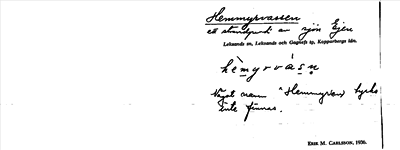 Hemmyrvassen
en strandpunkt av sjön Ejen
Leksands sn, Leksands och Gagnefs tp, Kopparbergs län.
hèmyrvàsn
Något namn "Hemmyren" tycks
inte finnas.
Erik M. Carlsson, 1930.